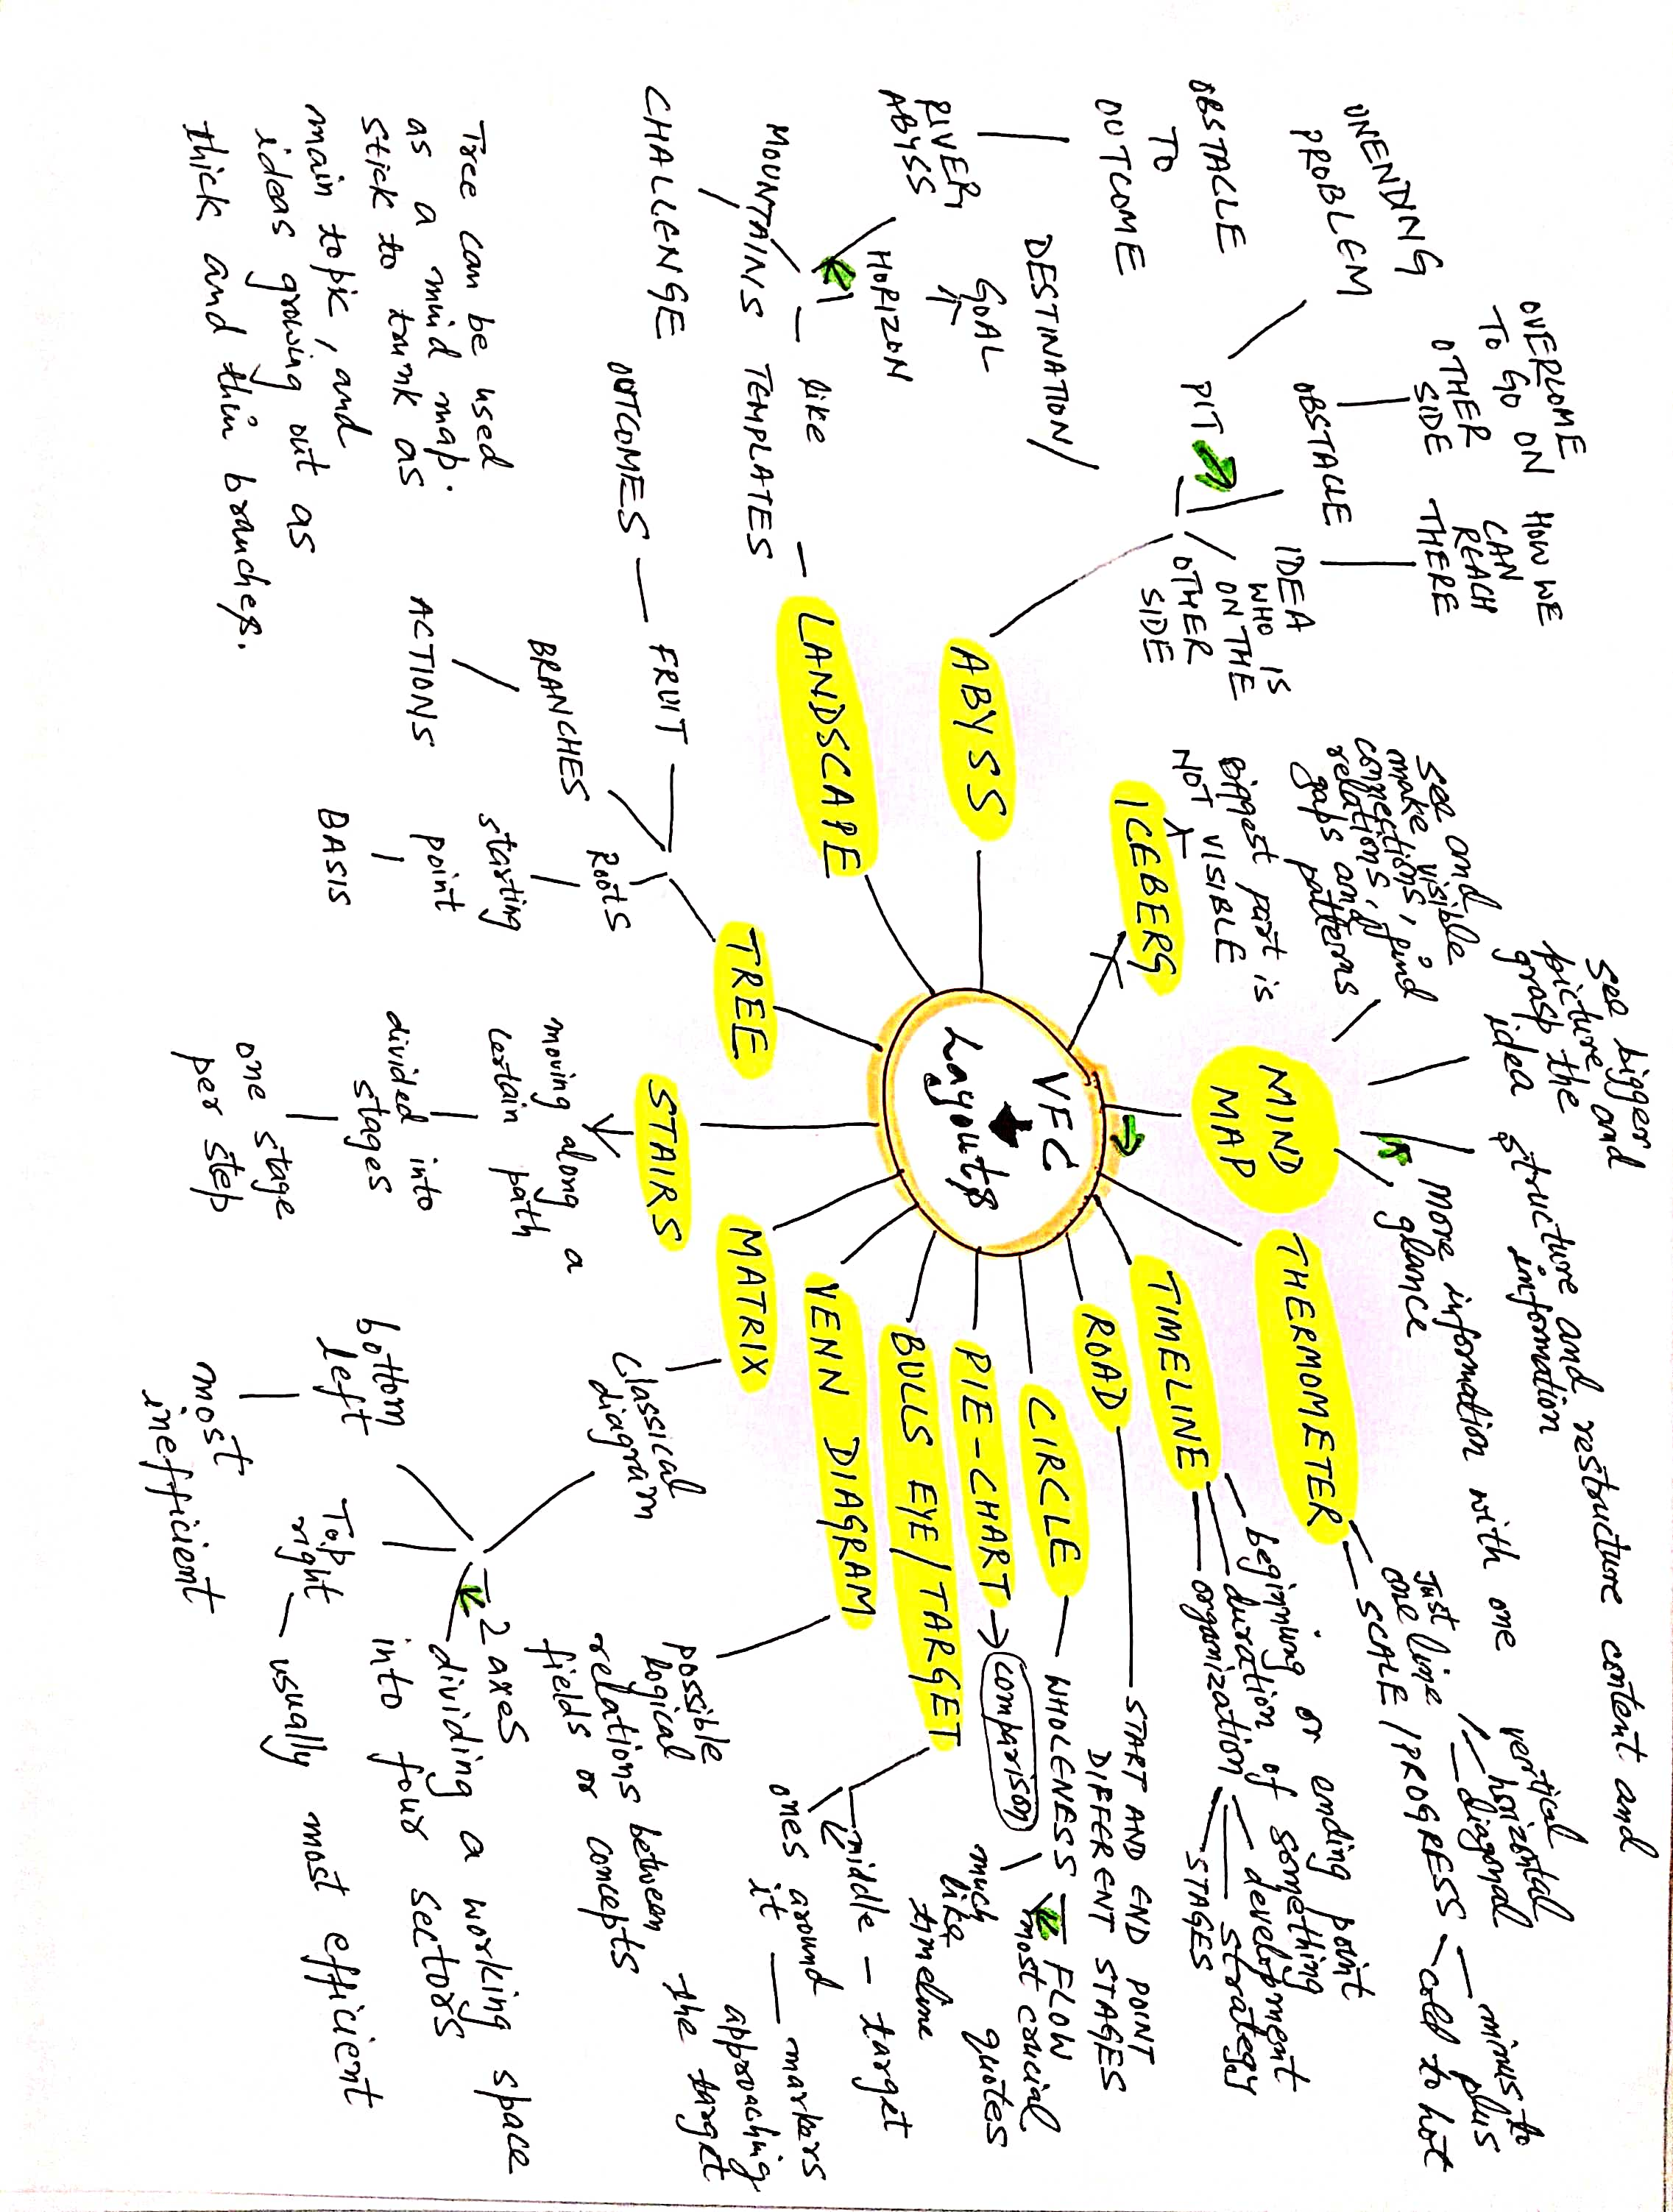 VFC
Layouts
MIND
MAP
see and
make visible
connections, find
relations, and
gaps and patterns
see bigger
picture and
grasp the
idea
structure and restructure content and
information
more information with one
glance
THERMOMETER
SCALE / PROGRESS
Just
one line
vertical
horizontal
diagonal
minus to
plus
cold to hot
TIMELINE
beginning or ending point
duration of something
organization
development
strategy
STAGES
ROAD
START AND END POINT
DIFFERENT STAGES
CIRCLE
WHOLENESS
FLOW
most crucial
quotes
much
like
timeline
PIE-CHART
comparison
BULLS EYE/TARGET
middle - target
ones around
it
markers
approaching
the target
VENN DIAGRAM
possible
logical
relations between
fields or concepts
MATRIX
Classical
diagram
2 axes
dividing a working space
into four sectors
Top
right
usually most efficient
bottom
left
most
inefficient
STAIRS
moving along a
certain path
divided into
stages
one stage
per step
TREE
ROOTS
starting
point
BASIS
BRANCHES
ACTIONS
FRUIT
OUTCOMES
Tree can be used
as a mind map.
stick to trunk as
main topic, and
ideas growing out as
thick and thin branches.
LANDSCAPE
TEMPLATES
like
MOUNTAINS
CHALLENGE
HORIZON
GOAL
RIVER
ABYSS
ABYSS
DESTINATION
PIT
UNENDING
PROBLEM
OBSTACLE
TO
OUTCOME
OBSTACLE
OVERCOME
TO GO ON
OTHER
SIDE
HOW WE
CAN
REACH
THERE
IDEA
WHO IS
ON THE
OTHER
SIDE
ICEBERG
Biggest part is
NOT VISIBLE